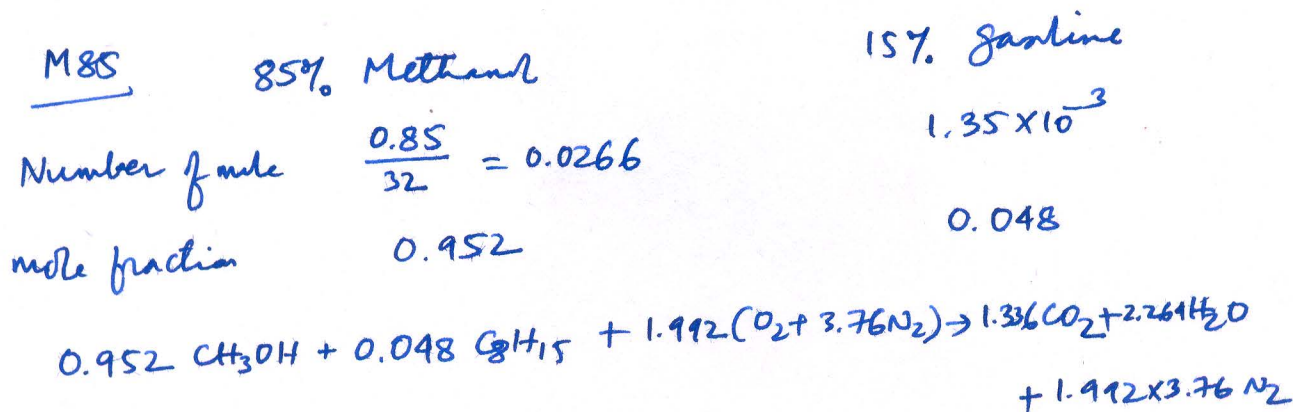 M85 85% Methanol 15% gasoline
Number of mole 0.85/32 = 0.0266 1.35×10⁻³
mole fraction 0.952 0.048
0.952 CH₃OH + 0.048 C₈H₁₅ + 1.992(O₂+3.76N₂)→1.336CO₂+2.264H₂O
+ 1.992×3.76 N₂